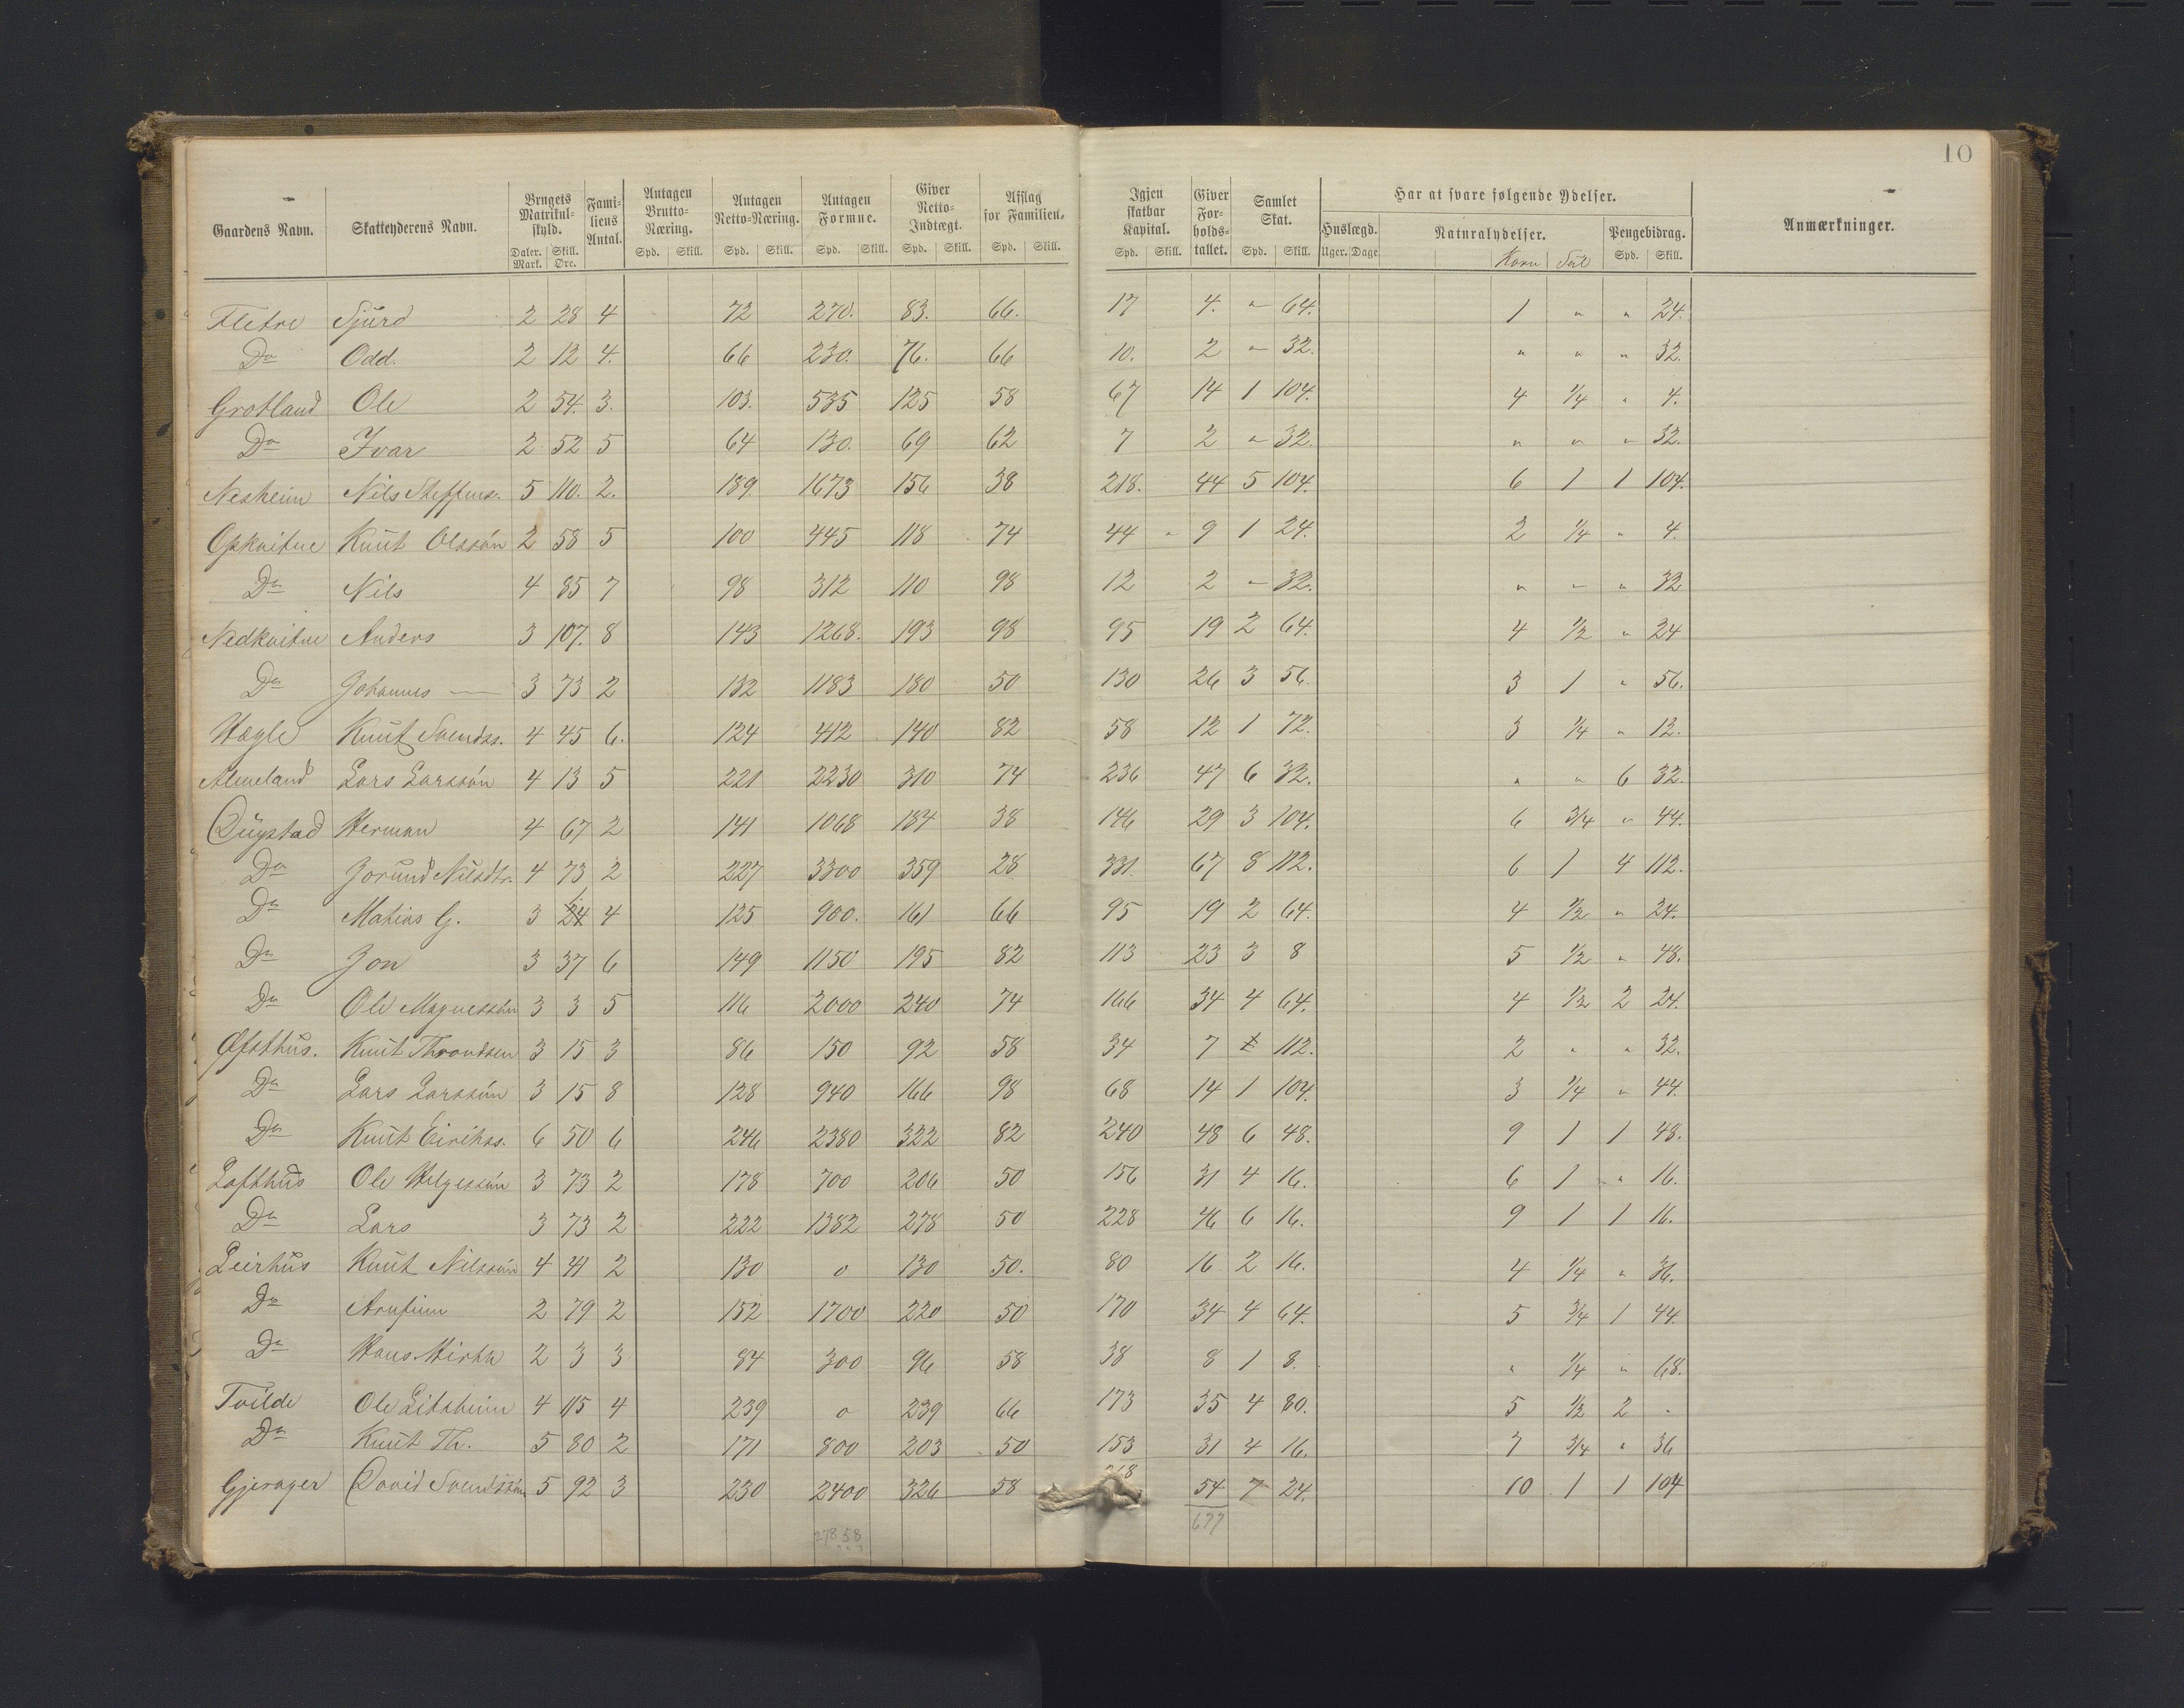 10
Gaardens Navn. Skatteyderens Navn. Brugets Matrikulskyld. Daler. Mark. Skill. Øre. Familiens Antal. Antagen Brutto-Næring. Spd. Skill. Antagen Netto-Næring. Spd. Skill. Antagen Formue. Spd. Skill. Giver Netto-Indtægt. Spd. Skill. Afslag for Familien. Spd. Skill. Igjen skatbar Kapital. Spd. Skill. Giver Forholdstallet. Samlet Skat. Spd. Skill. Har at svare følgende Ydelser. Huslægd. Uger. Dage Naturalydelser. Korn Sul Pengebidrag. Spd. Skill. Anmærkninger.
Fletre Sjurd 2 28 4 72 270. 83. 66. 17 4. " 64. 1 " " 24.
Do Odd. 2 12 4. 66 230. 76. 66 10. 2 " 32. " " " 32.
Grotland Ole 2 54. 3. 103. 535 125 58 67 14 1 104. 4 1/4 " 4.
Do Ivar 2 52 5 64 130. 69 62 7 2 " 32. " " " 32.
Nesheim Nils Steffens. 5 110. 2. 189 1673 156 38 218. 44 5 104. 6 1 1 104.
Opkvitne Knut Olssøn 2 58 5 100 445 118 74 44 " 9 1 24. 2 1/4 " 4.
Do Nils 4 85 7 98 312 110 98 12 2 " 32. " " " 32
Nedkvitne Anders 3 107. 8 143 1268. 193 98 95 19 2 64. 4 1/2 " 24
Do Johannes 3 73 2 132 1183 180 50 130 26 3 56. 3 1 " 56.
Hægle Knut Svendss. 4 45 6. 124 412 140 82 58 12 1 72. 3 1/4 " 12.
Almeland Lars Larssøn 4 13 5 221 2230 310 74 236 47 6 32. " " 6 32.
Dugstad Herman 4 67 2 141 1068 184 38 146 29 3 104. 6 3/4 " 44.
Do Jorund Nilsdtr. 4 73 2 227 3300 359 28 331. 67 8 112. 6 1 4 112.
Do Matias G. 3 24 4 125 900. 161 66 95 19 2 64. 4 1/2 " 24.
Do Jon 3 37 6 149 1150 195 82 113 23 3 8 5 1/2 " 48.
Do Ole Magnessøn 3 3 5 116 2000 240 74 166 34 4 64. 4 1/2 2 24.
Øfsthus. Knut Throndsen 3 15 3 86 150 92 58 34 7 112. 2 " " 32.
Do Lars Larssøn 3 15 8 128 940 166 98 68 14 1 104. 3 1/4 " 44.
Do Knut Eirikss. 6 50 6 246 2380 322 82 240 48 6 48. 9 1 1 48.
Lofthus Ole Helgessøn 3 73 2 178 700 206 50 156 31 4 16. 6 1 " 16.
Do Lars 3 73 2 222 1382 278 50 228 46 6 16. 9 1 1 16.
Leirhus Knut Nilssøn 4 41 2 130 0 130 50. 80 16 2 16. 4 1/4 " 36.
Do Arnfinn 2 79 2 152 1700 220 50 170 34 4 64. 5 3/4 1 44.
Do Hans Hirth 2 3 3 84 300 96 58 38 8 1 8. " 1/4 " 68.
Tvilde Ole Litsheim 4 115 4 239 0 239 66 173 35 4 80. 5 1/2 2 "
Do Knut Th. 5 80 2 171 800 203 50 153 31 4 16. 7 3/4 " 36
Gjerager David Svendssøn 5 92 3 230 2400 326 58 54 7 24. 10 1 1 104
27858 677